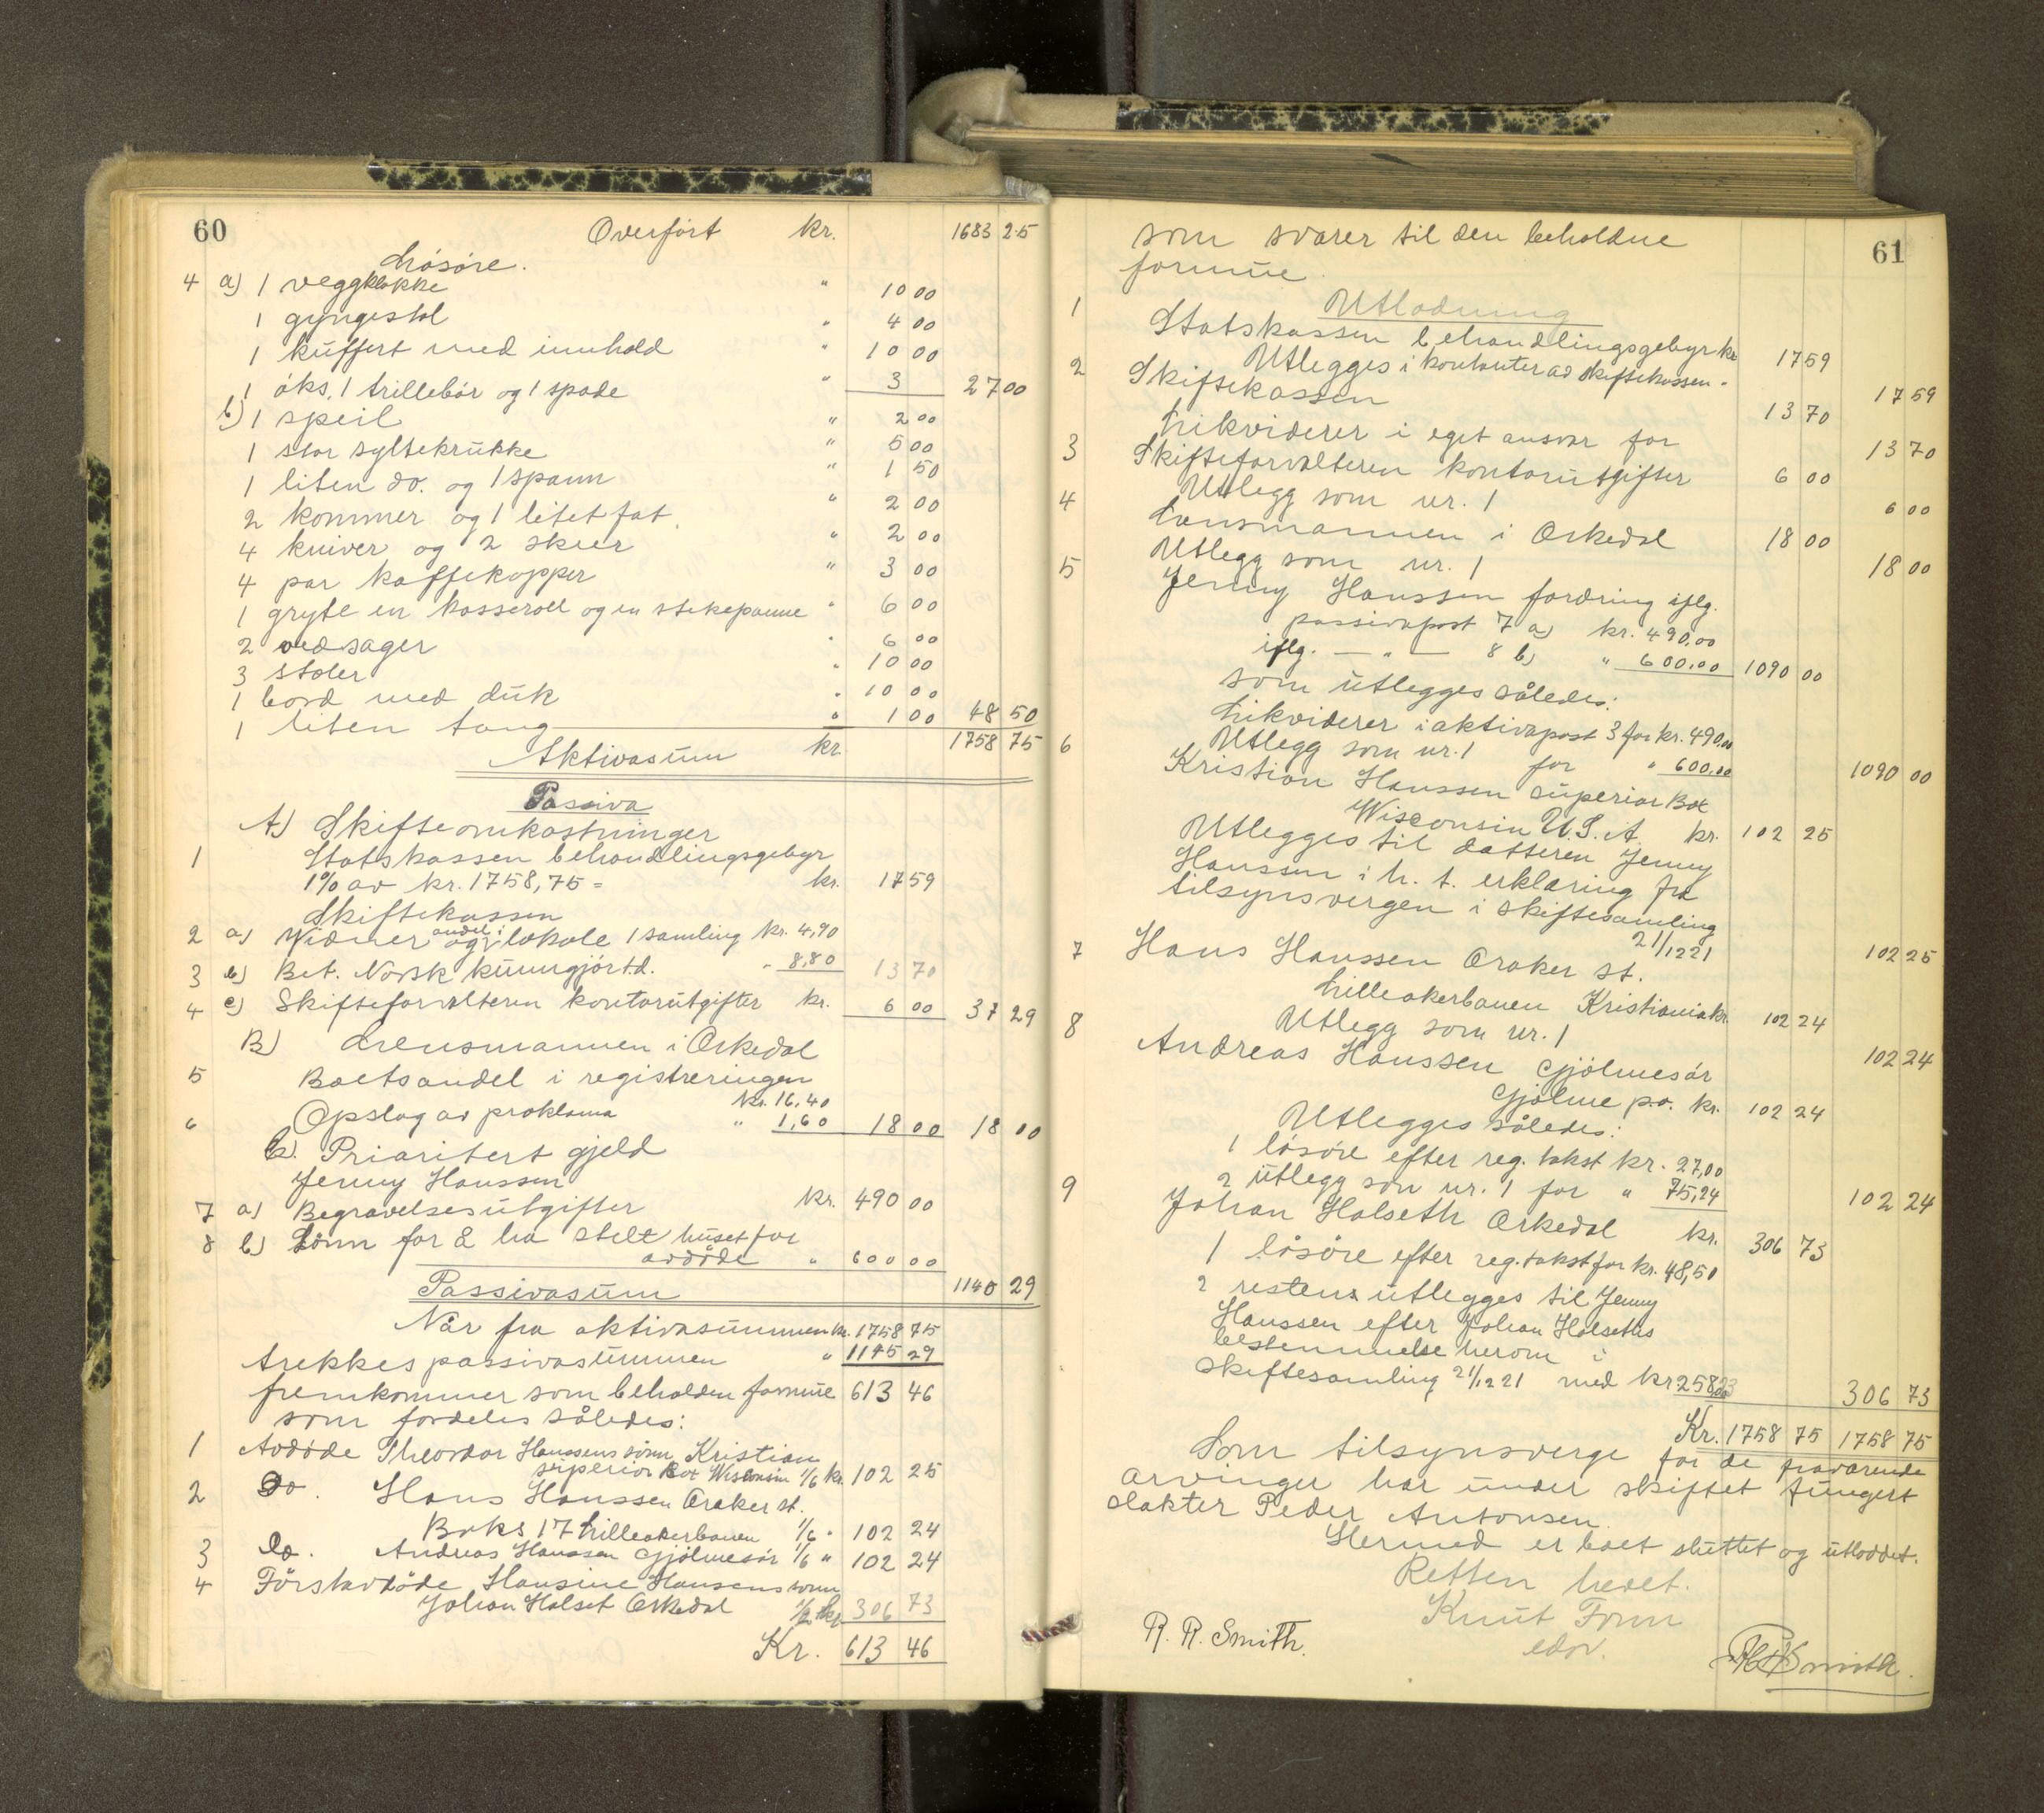 60
Overført kr. 1683 25
Løsøre.
4 a) 1 veggklokke " 10 00
1 gyngestol " 4 00
1 kuffert med innhold " 10 00
1 øks, 1 trillebør og 1 spade " 3 27 00
b) 1 speil " 2 00
1 stor syltekrukke " 5 00
1 liten do. og 1 spann " 1 50
2 kommer og 1 litet fat. " 2 00
4 kniver og 2 skeer " 2 00
4 par kaffekopper " 3 00
1 gryte en kasseroll og en stekepanne " 6 00
2 vedsager " 6 00
3 stoler " 10 00
1 bord med duk " 10 00
1 liten tang " 1 00 48 50
Aktivasum kr. 1758 75
Passiva
A) Skifteomkostninger
1 Statskassen behandlingsgebyr
1% av kr. 1758,75 = kr. 17 59
Skiftekassen
2 a) Vidner og andel i lokale 1 samling kr. 4,90
3 b) Bet. Norsk kunngjørtd. " 8,80 13 70
4 c) Skifteforvalteren kontorutgifter kr. 6 00 37 29
B) Lensmannen i Orkedal
5 Boets andel i registreringen
kr. 16,40
6 Opslag av proklama " 1,60 18 00 18 00
b). Prioritert gjeld
Jenny Hanssen
7 a) Begravelsesutgifter kr. 490 00
8 b) Lønn for å ha stelt huset for
avdøde " 600 00
Passivasum 1140 29
Når fra aktivasummen kr. 1758 75
trekkes passivasummen " 1145 29
fremkommer som beholden formue 613 46
som fordeles således:
1 Avdøde Theodor Hanssens sønn Kristian
superior Box Wisconsin 1/6 kr. 102 25
2 Do. Hans Hanssen Oraker st.
Boks 17 Lilleakerbanen 1/6 " 102 24
3 Do. Andreas Hanssen Gjølmesør 1/6 " 102 24
4 Førstavdøde Hansine Hansens sønn
Johan Halset Orkedal 1/2 kr. 306 73
Kr. 613 46
61
som svarer til den beholdne
formue.
Utlodning
1 Statskassen behandlingsgebyr kr 17 59
Utlegges i kontanter av skiftekassen " 17 59
2 Skiftekassen 13 70
Likviderer i eget ansvar for 13 70
3 Skifteforvalteren kontorutgifter 6 00
Utlegg som nr. 1 6 00
4 Lensmannen i Orkedal 18 00
Utlegg som nr. 1 18 00
5 Jenny Hanssen fordring iflg.
passivapost 7 a) kr. 490,00
iflg. — " — 8 b) " 600,00 1090 00
som utlegges således:
Likviderer i aktivapost 3 for kr. 490,00
Utlegg som nr. 1 for " 600,00 1090 00
6 Kristian Hanssen superior Box
Wisconsin U.S.A. kr. 102 25
Utlegges til datteren Jenny
Hanssen i h. t. erklæring fra
tilsynsvergen i skiftesamling
21/12 21 102 25
7 Hans Hanssen Oraker st.
Lilleakerbanen Kristiania kr. 102 24
Utlegg som nr. 1 102 24
8 Andreas Hanssen Gjølmesør
Gjølme p.o. kr. 102 24
Utlegges således:
1 løsøre efter reg. takst kr. 27,00
2 utlegg som nr. 1 for " 75,24 102 24
9 Johan Halseth Orkedal kr. 306 73
1 løsøre efter reg. takst for kr. 48,50
2 resten utlegges til Jenny
Hanssen efter Johan Halseths
bestemmelse herom i
skiftesamling 21/12 21 med kr 258,23 306 73
Kr. 1758 75 1758 75
Som tilsynsverge for de fraværende
arvinger har under skiftet fungert
slakter Peder Antonsen.
Hermed er boet sluttet og utloddet.
Retten hevet.
Knut Fonn
edsv.
R. R. Smith. RRSmith.